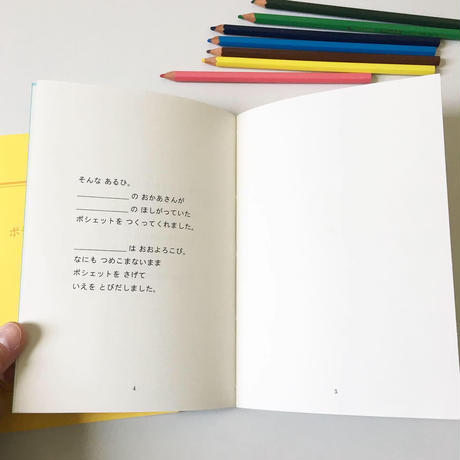 そんな あるひ。
____________ の おかあさんが
____________ の ほしがっていた
ポシェットを つくってくれました。
____________ は おおよろこび。
なにも つめこまないまま
ポシェットを さげて
いえを とびだしました。
4
5
ポ